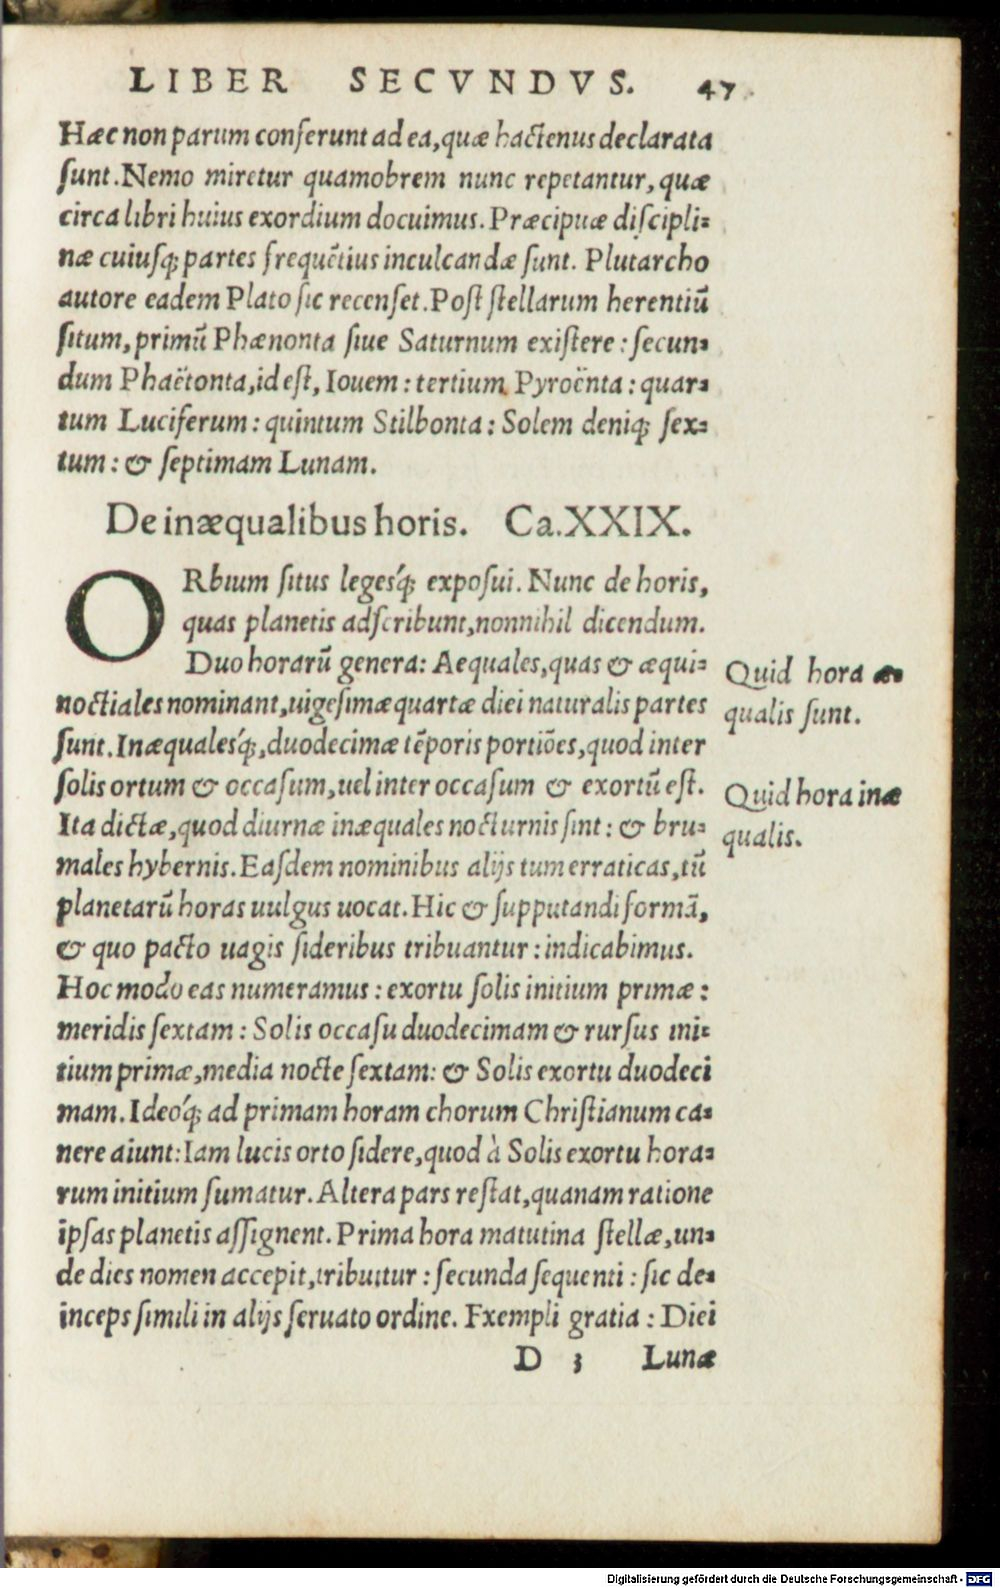 LIBER SECVNDVS. 47
Hæc non parum conferunt ad ea, quæ hactenus declarata
sunt. Nemo miretur quamobrem nunc repetantur, quæ
circa libri huius exordium docuimus. Præcipuæ discipli=
næ cuiusq; partes frequẽtius inculcandæ sunt. Plutarcho
autore eadem Plato sic recenset. Post stellarum herentiũ
situm, primũ Phænonta siue Saturnum existere: secun=
dum Phaëtonta, id est, Iouem: tertium Pyroënta: quar=
tum Luciferum: quintum Stilbonta: Solem deniq; sex=
tum: & septimam Lunam.
De inæqualibus horis. Ca. XXIX.
ORbium situs legesq́; exposui. Nunc de horis,
quas planetis adscribunt, nonnihil dicendum.
Duo horarũ genera: Aequales, quas & æqui=
noctiales nominant, uigesimæquartæ diei naturalis partes
sunt. Inæqualesq́;, duodecimæ tẽporis portiões, quod inter
solis ortum & occasum, uel inter occasum & exortũ est.
Ita dictæ, quod diurnæ inæquales nocturnis sint: & bru=
males hybernis. Easdem nominibus alijs tum erraticas, tũ
planetarũ horas uulgus uocat. Hic & supputandi formã,
& quo pacto uagis sideribus tribuantur: indicabimus.
Hoc modo eas numeramus: exortu solis initium primæ:
meridis sextam: Solis occasu duodecimam & rursus ini=
tium primæ, media nocte sextam: & Solis exortu duodeci
mam. Ideoq́; ad primam horam chorum Christianum ca=
nere aiunt: Iam lucis orto sidere, quod à Solis exortu hora=
rum initium sumatur. Altera pars restat, quanam ratione
ipsas planetis assignent. Prima hora matutina stellæ, un=
de dies nomen accepit, tribuitur: secunda sequenti: sic de=
inceps simili in alijs seruato ordine. Exempli gratia: Diei
D 3 Lunæ
Quid hora æ=
qualis sunt.
Quid hora inæ
qualis.
Digitalisierung gefördert durch die Deutsche Forschungsgemeinschaft - DFG